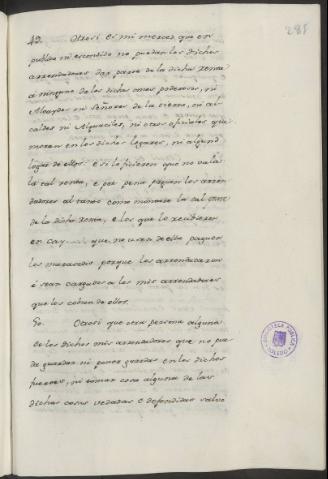 285
49. Otrosi es mi merced que en
publico ni escondido no puedan los dichos
arrendadores dar parte de la dicha renta
a ninguno de los dichos omes poderosos, ni
Alcaydes ni Señores de la tierra, ni al-
caldes ni Alguaciles, ni otros oficiales que
moren en los dichos lugares, ni algund
logar de ellos. E si lo ficieren que no vala
la tal renta, e por pena paguen los arren-
dadores al tanto como montare la tal
de la dicha renta, e los que lo recudieren
en que de ello paguen
los maravedis porque los arrendaron
o sean cargados a los mis arrendadores
que los cobren de ellos.
50. Otrosi que otra persona alguna
de los dichos mis arrendadores que no pue-
da guardar ni poner guardas en los dichos
puertos, ni tomar cosa alguna de las
dichas cosas vedadas e defendidas salvo
BIBLIOTECA PUBLICA
TOLEDO